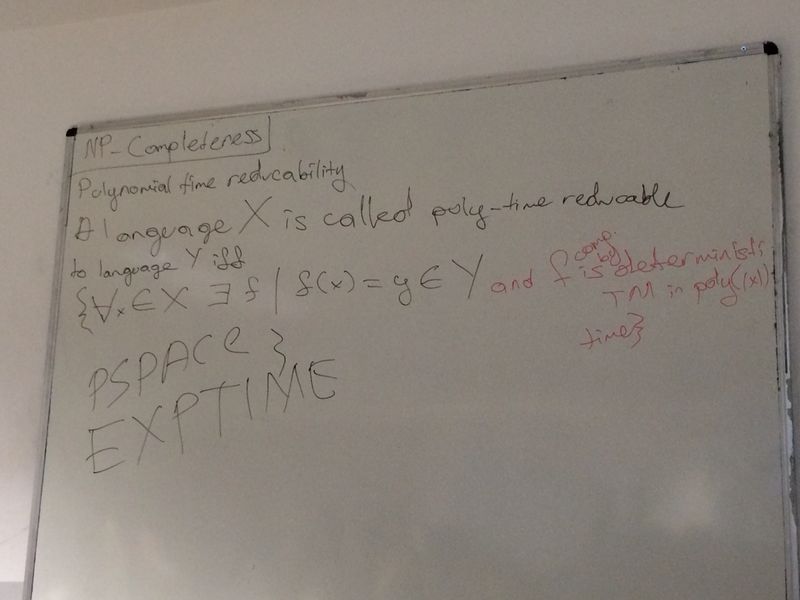 NP-Completeness
Polynomial time reducability
A language X is called poly-time reducable
to language Y iff
{∀x ∈ X ∃ f | f(x) = y ∈ Y and f is comp. by deterministi
TM in poly(|x|)
time}
PSPACE }
EXPTIME